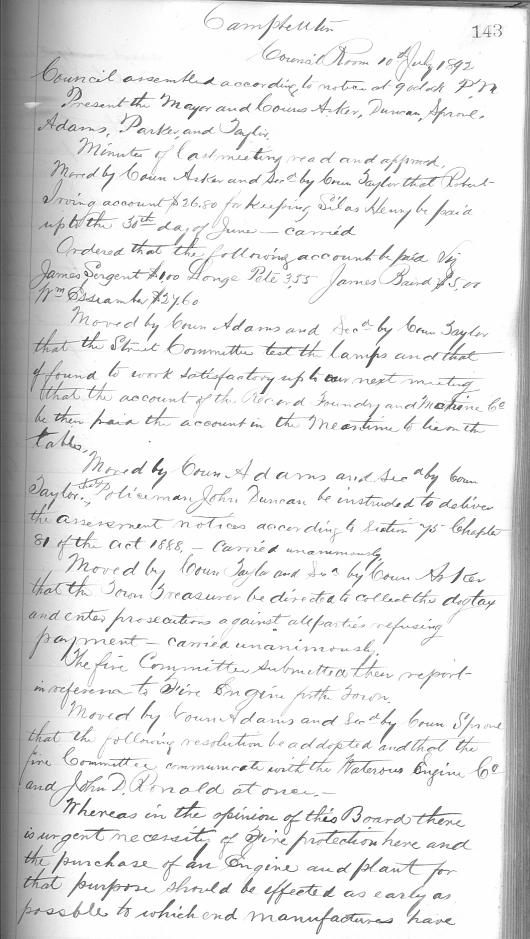 Campbellton
143
Council Room 10th July 1892
Council assembled according to notice at 9 oclock P.M
Present the Mayor and Couns Asker, Duncan, Sproul,
Adams, Parker, and Taylor.
Minutes of last meeting read and approved.
Moved by Coun Asker and Secd by Coun Taylor that Robert
Irving account $26.80 for keeping Silas Henry be paid
up to the 30th day of June — carried
Ordered that the following account be paid Viz
James Sergent $1.00 Pete 3.55 James Baird $5.00
Wm $27.60
Moved by Coun Adams and Secd by Coun Taylor
that the Street Committee test the lamps and that
if found to work satisfactory up to our next meeting
that the account of the Record Foundry and Machine Co
be then paid the account in the meantime to lie on the
table.
Moved by Coun Adams and Secd by Coun
Taylor, that Policeman John Duncan be instructed to deliver
the assessment notices according to Section 75 Chapter
81 of the act 1888, — carried unanimously
Moved by Coun Taylor and Secd by Coun Asker
that the Town Treasurer be directed to collect the dog tax
and enter prosecutions against all parties refusing
payment — carried unanimously.
The fire Committee submitted their report
in reference to Fire Engine for the Town.
Moved by Coun Adams and Secd by Coun Sproul
that the following resolution be adopted and that the
fire Committee communicate with the Waterous Engine Co
and John D. Ronald at once. —
Whereas in the opinion of this Board there
is urgent necessity of Fire protection here and
the purchase of an Engine and plant for
that purpose should be effected as early as
possible to which end manufactures have